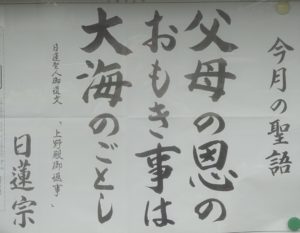 今月の聖語
父母の恩の
おもき事は
大海のごとし
日蓮聖人御遺文
「上野殿御返事」
日蓮宗